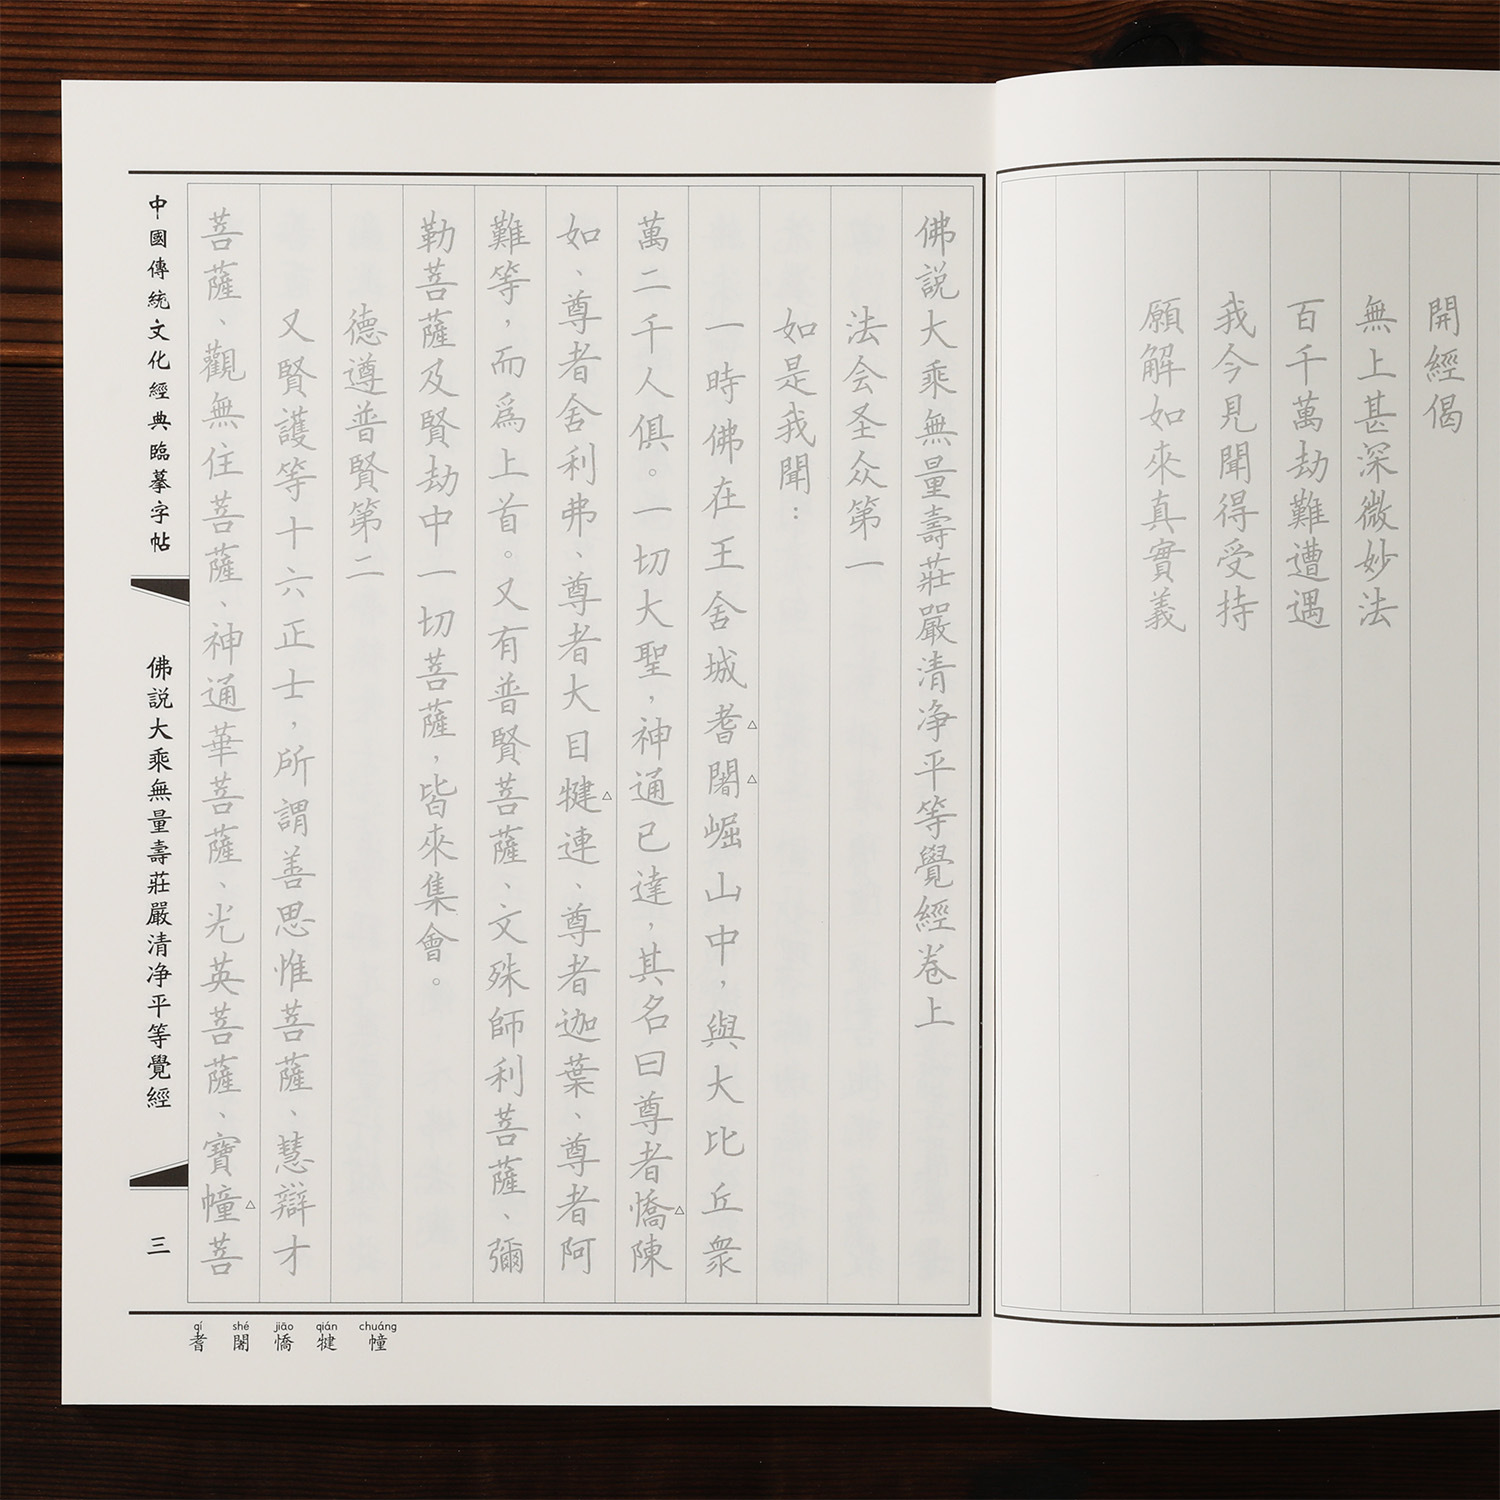 開經偈
無上甚深微妙法
百千萬劫難遭遇
我今見聞得受持
願解如來真實義
佛説大乘無量壽莊嚴清净平等覺經卷上
法会圣众第一
如是我聞：
一時佛在王舍城耆闍崛山中，與大比丘衆
萬二千人俱。一切大聖，神通已達，其名曰尊者憍陳
如、尊者舍利弗、尊者大目犍連、尊者迦葉、尊者阿
難等，而爲上首。又有普賢菩薩、文殊師利菩薩、彌
勒菩薩及賢劫中一切菩薩，皆來集會。
德遵普賢第二
又賢護等十六正士，所謂善思惟菩薩、慧辯才
菩薩、觀無住菩薩、神通華菩薩、光英菩薩、寶幢菩
中國傳統文化經典臨摹字帖
佛説大乘無量壽莊嚴清净平等覺經
三
qí shé jiāo qián chuáng
耆 闍 憍 犍 幢